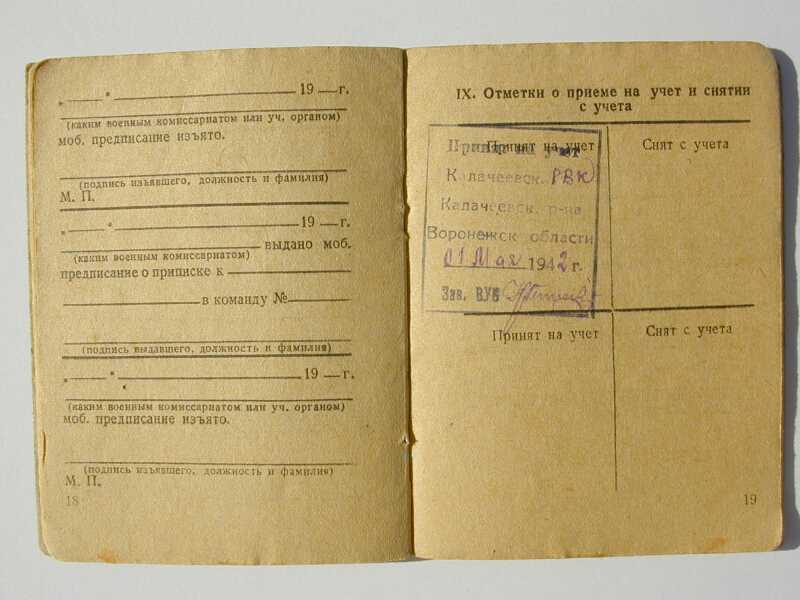 „ “ 19 г.
(каким военным комиссариатом или уч. органом)
моб. предписание изъято.
(подпись изъявшего, должность и фамилия)
М. П.
„ “ 19 г.
выдано моб.
(каким военным комиссариатом)
предписание о приписке к
в команду №
(подпись выдавшего, должность и фамилия)
„ “ 19 г.
(каким военным комиссариатом или уч. органом)
моб. предписание изъято.
(подпись изъявшего, должность и фамилия)
М. П.
18
IX. Отметки о приеме на учет и снятии
с учета
Принят на учет
Снят с учета
Принят на учет
Калачеевск. РВК
Калачеевск. р-на
Воронежск области
01 Мая 1942 г.
Зав. ВУБ
Принят на учет
Снят с учета
19